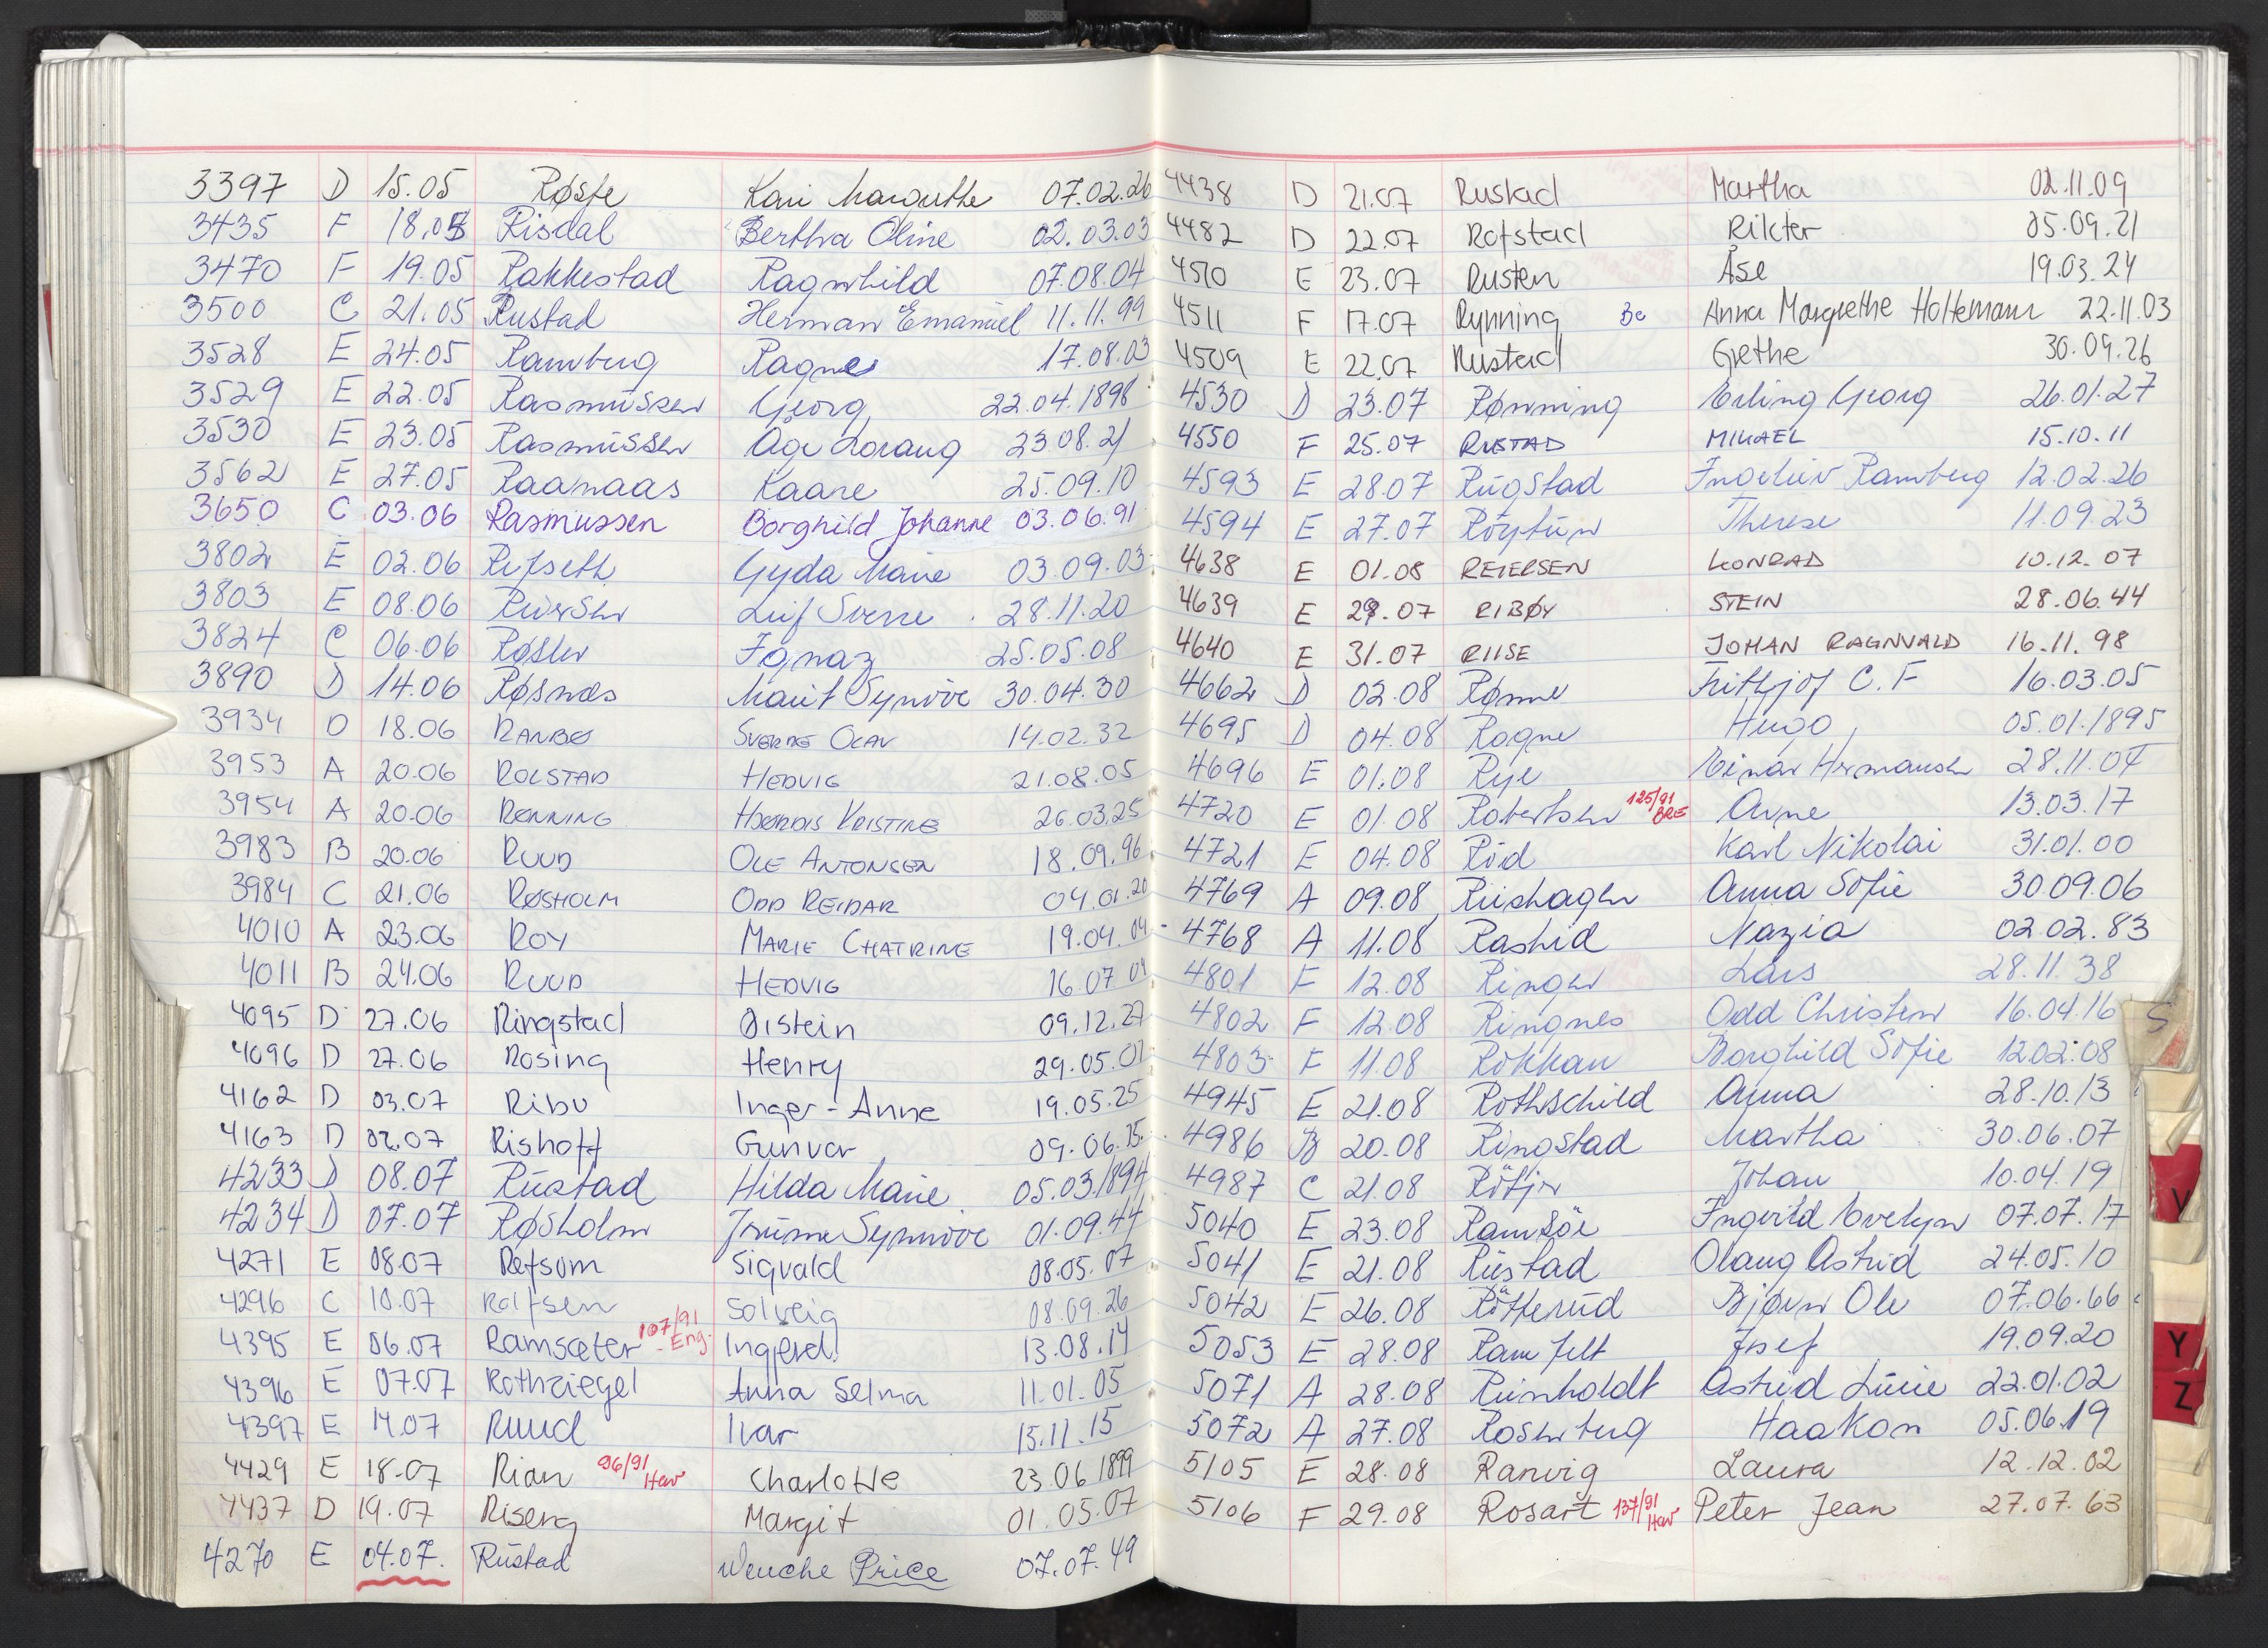 3397 D 15.05 Røste Kari Margrethe 07.02.26
3435 F 18.05 Risdal Bertha Oline 02.03.03
3470 F 19.05 Rakkestad Ragnhild 07.08.04
3500 C 21.05 Rustad Herman Emanuel 11.11.99
3528 E 24.05 Ramberg Ragne 17.08.03
3529 E 22.05 Rasmussen Georg 22.04.1898
3530 E 23.05 Rasmussen Åge Lorang 23.08.21
3562 E 27.05 Raanaas Kaare 25.09.10
3650 C 03.06 Rasmussen Borghild Johanne 03.06.91
3802 E 02.06 Refseth Gyda Marie 03.09.03
3803 E 08.06 Leif Sverre 28.11.20
3824 C 06.06 Røsler Ignaz 25.05.08
3890 D 14.06 Røsnes Marit Synnöve 30.04.30
3934 D 18.06 RANBO SVERRE OLAV 14.02.32
3953 A 20.06 ROLSTAD HEDVIG 21.08.05
3954 A 20.06 RØNNING HJØRDIS KRISTINE 26.03.25
3983 B 20.06 RUUD OLE ANTONSEN 18.09.96
3984 C 21.06 RØSHOLM ODD REIDAR 04.01.20
4010 A 23.06 ROY MARIE CHATRINE 19.04.04
4011 B 24.06 RUUD HEDVIG 16.07.04
4095 D 27.06 Ringstad Øistein 09.12.27
4096 D 27.06 Rosing Henry 29.05.07
4162 D 03.07 Ribu Inger-Anne 19.05.25
4163 D 02.07 Rishoff Gunvor 09.06.15
4233 D 08.07 Rustad Hilda Marie 05.03.1894
4234 D 07.07 Røsholm Synnöve 01.09.44
4271 E 08.07 Refsum Sigvald 08.05.07
4296 C 10.07 Rolfsen Solveig 08.09.26
4395 E 06.07 Ramsæter 107/91 Eng. Ingerd 13.08.14
4396 E 07.07 Rothziegel Anna Selma 11.01.05
4397 E 14.07 Ruud Ivar 15.11.15
4429 E 18.07 Rian 96/91 Hav Charlotte 23.06.1899
4437 D 19.07 Riseng Margit 01.05.07
4270 E 04.07. Rustad Wenche Price 07.07.49
4438 D 21.07 Rustad Martha 02.11.09
4482 D 22.07 Rofstad Rikter 05.09.21
4510 E 23.07 Rusten Åse 19.03.24
4511 F 17.07 Rynning Be Anna Margrethe Holtemann 22.11.03
4509 E 22.07 Rustad Grethe 30.09.26
4530 D 23.07 Rønning Erling Georg 26.01.27
4550 F 25.07 RUSTAD MIKAEL 15.10.11
4593 E 28.07 Rugstad Ingeliv Ramberg 12.02.26
4594 E 27.07 Röytun Therese 11.09.23
4638 E 01.08 REIERSEN KONRAD 10.12.07
4639 E 29.07 RIBØY STEIN 28.06.44
4640 E 31.07 RIISE JOHAN RAGNVALD 16.11.98
4662 D 02.08 Rønne Frithjof C.F 16.03.05
4695 D 04.08 Rogne Hugo 05.01.1895
4696 E 01.08 Rye Einar Hermansen 28.11.07
4720 E 01.08 Robertsen 125/91 BRE Arne 13.03.17
4721 E 04.08 Röd Karl Nikolai 31.01.00
4769 A 09.08 Riishagen Anna Sofie 30.09.06
4768 A 11.08 Rashid Nazia 02.02.83
4801 F 12.08 Ringer Lars 28.11.38
4802 F 12.08 Ringnes Odd Christen 16.04.16
4803 F 11.08 Rokkan Borghild Sofie 12.02.08
4945 E 21.08 Rothschild Anna 28.10.13
4986 B 20.08 Ringstad Martha 30.06.07
4987 C 21.08 Johan 10.04.19
5040 E 23.08 Ramsöe Ingvild Evelyn 07.07.17
5041 E 21.08 Rustad Olaug Astrid 24.05.10
5042 E 26.08 Rötterud Bjørn Ole 07.06.66
5053 E 28.08 Ramfelt Josef 19.09.20
5071 A 28.08 Reinholdt Astrid Lucie 22.01.02
5072 A 27.08 Rosenberg Haakon 05.06.19
5105 E 28.08 Ranvig Laura 12.12.02
5106 F 29.08 Rosart 137/91 Hav Peter Jean 27.07.63
S
V
Y
Z